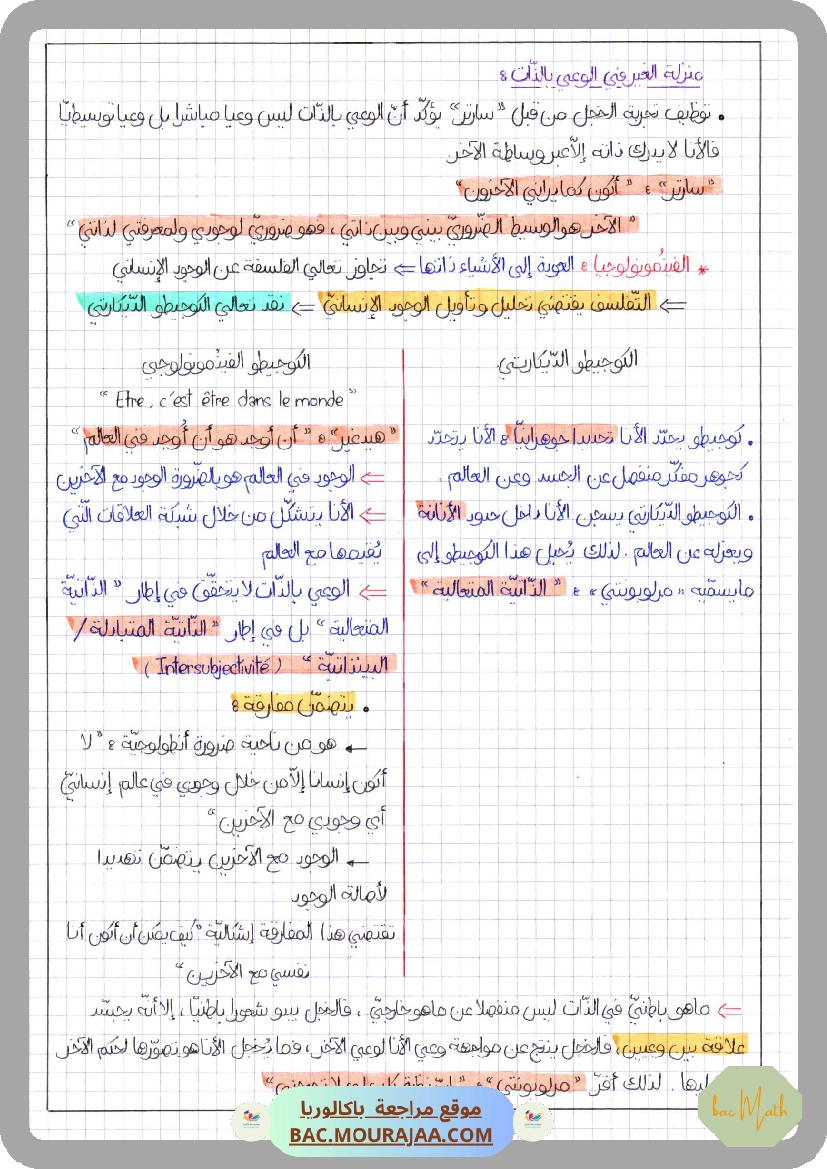 منزلة الغير في الوعي بالذّات :
• توظيف تجربة الخجل من قبل "سارتر" يؤكّد أنّ الوعي بالذّات ليس وعيا مباشرا بل وعيا توسيطيّا
فالأنا لا يدرك ذاته إلاّ عبر وساطة الآخر
"سارتر" : "أكون كما يراني الآخرون"
"الآخر هو الوسيط الضّروريّ بيني وبين ذاتي، فهو ضروريّ لوجودي ولمعرفتي لذاتي"
* الفينُمونولوجيا : العودة إلى الأشياء ذاتها ⇐ تجاوز تعالي الفلسفة عن الوجود الإنساني
⇐ التّفلسف يقتضي تحليل وتأويل الوجود الإنسانيّ ⇐ نقد تعالي الكوجيطو الدّيكارتي
الكوجيطو الدّيكارتي
• كوجيطو يحدّد الأنا تحديدا جوهرانيّا : الأنا يتحدّد
كجوهر مفكّر منفصل عن الجسد وعن العالم.
• الكوجيطو الدّيكارتي يسجن الأنا داخل حدود الأنانة
ويعزله عن العالم. لذلك يُحيل هذا الكوجيطو إلى
ما يسمّيه "مرلوبونتي" : "الذّاتيّة المتعالية"
الكوجيطو الفينُمونولوجي
"Etre, c'est être dans le monde"
"هيدغير" : "أن أوجد هو أن أُوجد في العالم"
⇐ الوجود في العالم هو بالضّرورة الوجود مع الآخرين
⇐ الأنا يتشكّل من خلال شبكة العلاقات الّتي
يُقيمها مع العالم
⇐ الوعي بالذّات لا يتحقّق في إطار "الذّاتيّة
المتعالية" بل في إطار "الذّاتيّة المتبادلة /
البينذاتيّة" (Intersubjectivité)
• يتضمّن مفارقة :
← هو من ناحية ضرورة أنطولوجيّة : "لا
أكون إنسانا إلاّ من خلال وجودي في عالم إنسانيّ
أي وجودي مع الآخرين"
← الوجود مع الآخرين يتضمّن تهديدا
لأصالة الوجود
تقتضي هذا المفارقة إشكاليّة "كيف يمكن أن أكون أنا
نفسي مع الآخرين"
⇐ ماهو باطنيّ في الذّات ليس منفصلا عن ماهو خارجيّ، فالخجل يبدو شعورا باطنيّا، إلا أنّه يجسّد
علاقة بين وعيين، فالخجل ينتج عن مواجهة وعي الأنا لوعي الآخر، فما يُخجل الأنا هو تصوّرها لحكم الآخر
عليها. لذلك أقرّ "مرلوبونتي" :
موقع مراجعة باكالوريا
BAC.MOURAJAA.COM
bac Math